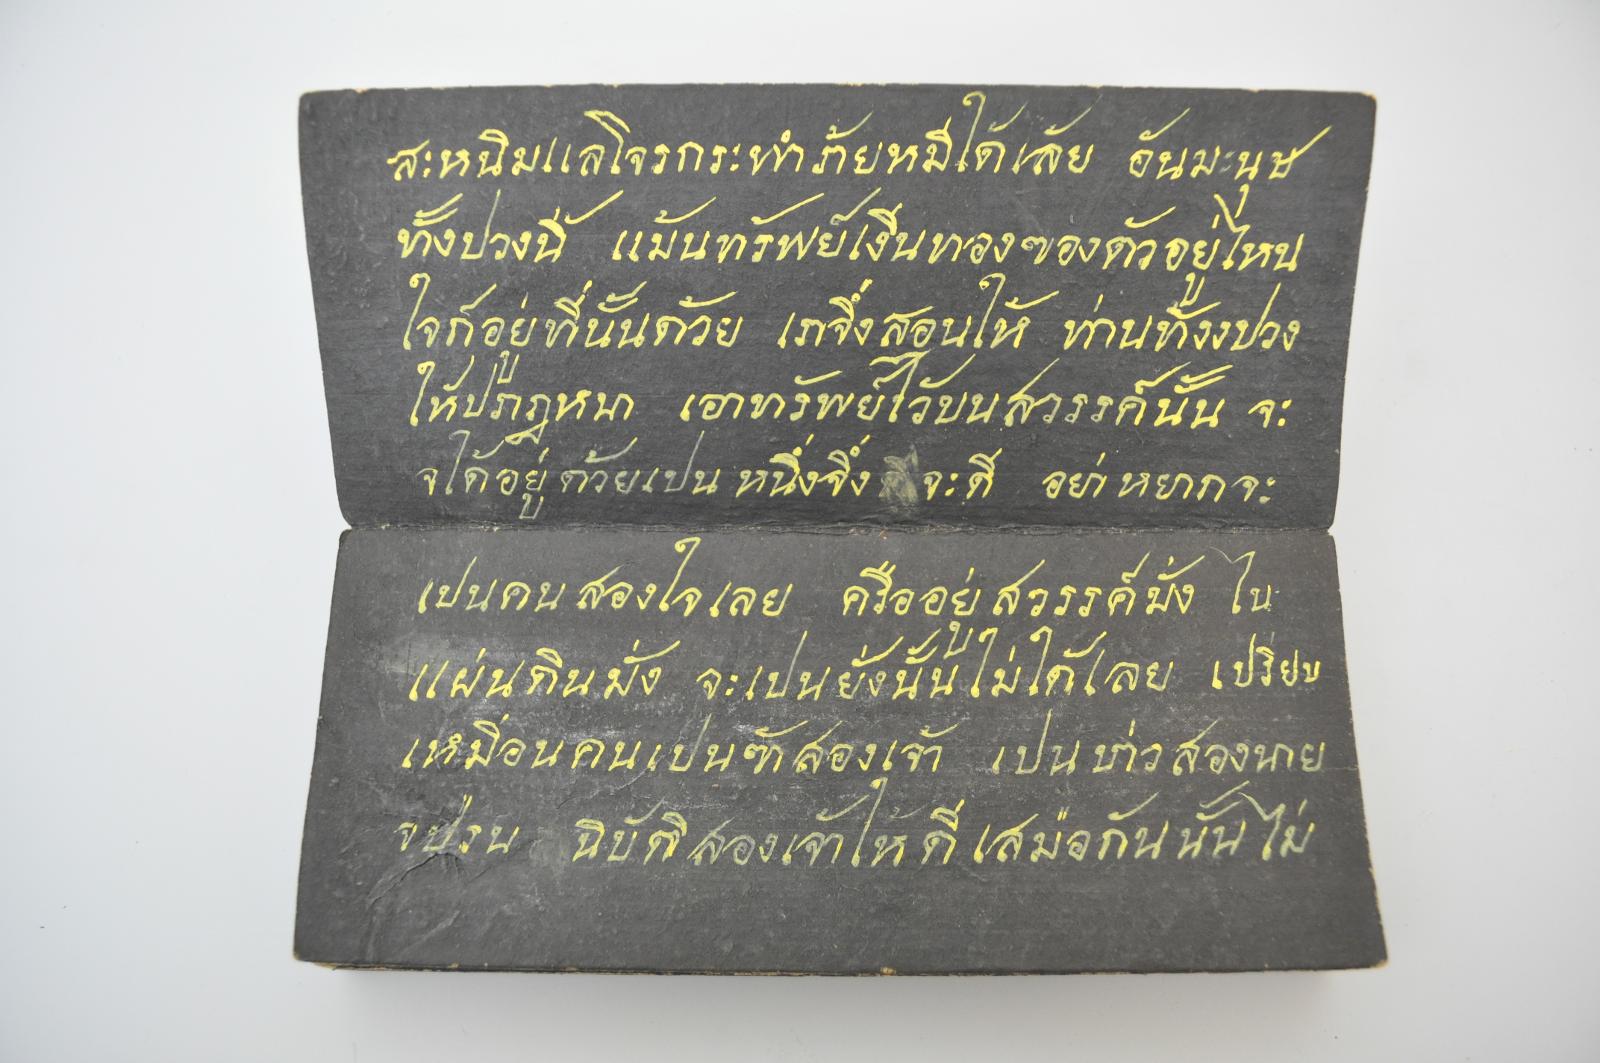 สะหนิมแลโจรกระทำร้ายหมีได้เล้ย อันมะนุษ
ทั้งปวงนี้ แม้นทรัพย์เงีนทองฃองตัวอยู่ไหน
ใจก็อยู่ที่นั้นด้วย เราจึ่งสอนให้ ท่านทั้งงปวง
ให้ปรากฎหนา เอาทรัพย์ไว้บนสวรรค์นั้น จะ
จได้อยู่ด้วยเปน หนึ่งจึ่ง จะดี อย่าหยากจะ
เปนคนสองใจเลย ครืออยู่สวรรค์มั่ง ใน
แผ่นดินมั่ง จะเปนยั่งนั้นไม่ได้เลย เปรียบ
เหมือนคนเปนฃ้าสองเจ้า เปนบ่าวสองนาย
ฉิบัติสองเจ้าให้ดีเสม่อกันนั้นไม่